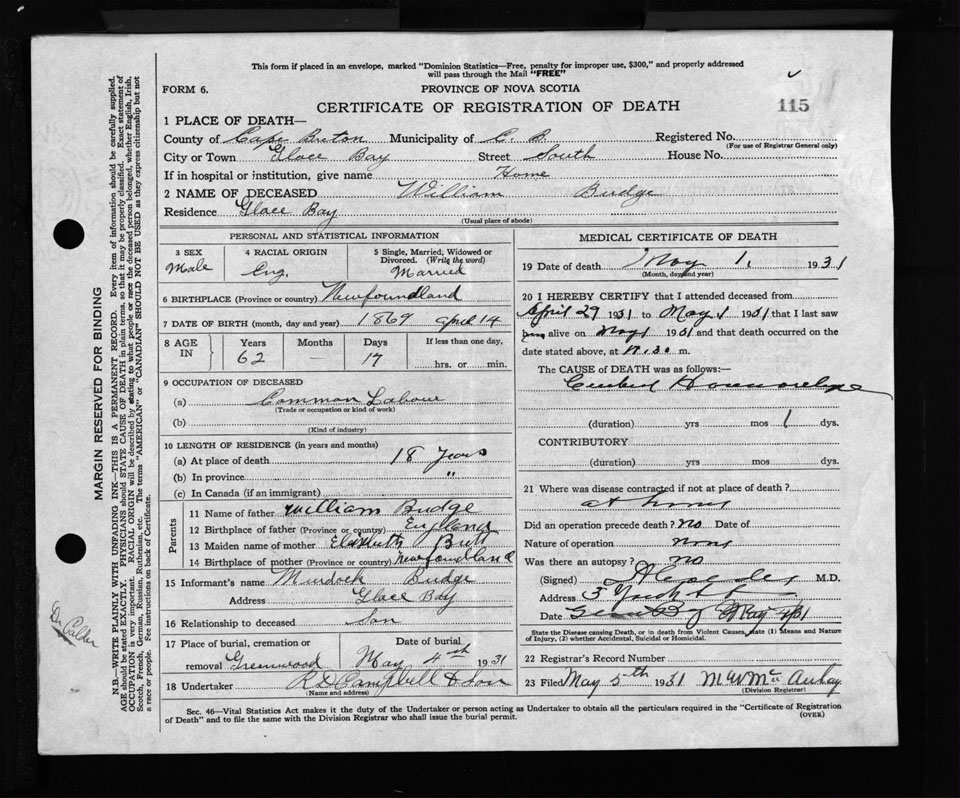 This form if placed in an envelope, marked "Dominion Statistics—Free, penalty for improper use, $300," and properly addressed
will pass through the Mail "FREE"
FORM 6.
PROVINCE OF NOVA SCOTIA
CERTIFICATE OF REGISTRATION OF DEATH
115
1 PLACE OF DEATH—
County of Cape Breton Municipality of C. B. Registered No.
(For use of Registrar General only)
City or Town Glace Bay Street South House No.
If in hospital or institution, give name Home
2 NAME OF DECEASED William Budge
Residence Glace Bay
(Usual place of abode)
PERSONAL AND STATISTICAL INFORMATION
3 SEX Male
4 RACIAL ORIGIN Eng.
5 Single, Married, Widowed or Divorced. (Write the word) Married
6 BIRTHPLACE (Province or country) Newfoundland
7 DATE OF BIRTH (month, day and year) 1869 April 14
8 AGE IN Years Months Days If less than one day,
62 — 17 hrs. or min.
9 OCCUPATION OF DECEASED
(a) Common Labour
(Trade or occupation or kind of work)
(b)
(Kind of industry)
10 LENGTH OF RESIDENCE (in years and months)
(a) At place of death 18 Years
(b) In province "
(c) In Canada (if an immigrant)
Parents
11 Name of father William Budge
12 Birthplace of father (Province or country) England
13 Maiden name of mother Elizabeth Butt
14 Birthplace of mother (Province or country) Newfoundland
15 Informant's name Murdock Budge
Address Glace Bay
16 Relationship to deceased Son
17 Place of burial, cremation or removal Greenwood
Date of burial May 4th 1931
18 Undertaker R D Campbell & Son
(Name and address)
MEDICAL CERTIFICATE OF DEATH
19 Date of death May 1, 1931
(Month, day and year)
20 I HEREBY CERTIFY that I attended deceased from
April 29 1931 to May 1 1931 that I last saw
alive on May 1 1931 and that death occurred on
date stated above, at m.
The CAUSE of DEATH was as follows:—
Cerebral Hemorrhage
(duration) yrs mos 1 dys.
CONTRIBUTORY
(duration) yrs. mos. dys.
21 Where was disease contracted if not at place of death?
at home
Did an operation precede death? No Date of
Nature of operation None
Was there an autopsy? no
(Signed) M.D.
Address
Date May
State the Disease causing Death, or in death from Violent Causes, state (1) Means and Nature
of Injury, (2) whether Accidental, Suicidal or Homicidal.
22 Registrar's Record Number
23 Filed May 5th 1931 M W McAulay
(Division Registrar)
Sec. 46—Vital Statistics Act makes it the duty of the Undertaker or person acting as Undertaker to obtain all the particulars required in the "Certificate of Registration
of Death" and to file the same with the Division Registrar who shall issue the burial permit.
(OVER)
MARGIN RESERVED FOR BINDING
N.B.—WRITE PLAINLY, WITH UNFADING INK—THIS IS A PERMANENT RECORD. Every item of information should be carefully supplied.
AGE should be stated EXACTLY. PHYSICIANS should STATE CAUSE OF DEATH in plain terms, so that it may be properly classified. Exact statement of
OCCUPATION is very important. RACIAL ORIGIN will be described by stating to what people or race the deceased person belonged, whether English, Irish,
Scotch, French, German, Russian, Ruthenian, etc. The terms "AMERICAN" or "CANADIAN" SHOULD NOT BE USED as they express citizenship but not
a race or people. See instructions on back of Certificate.
Dr Calder